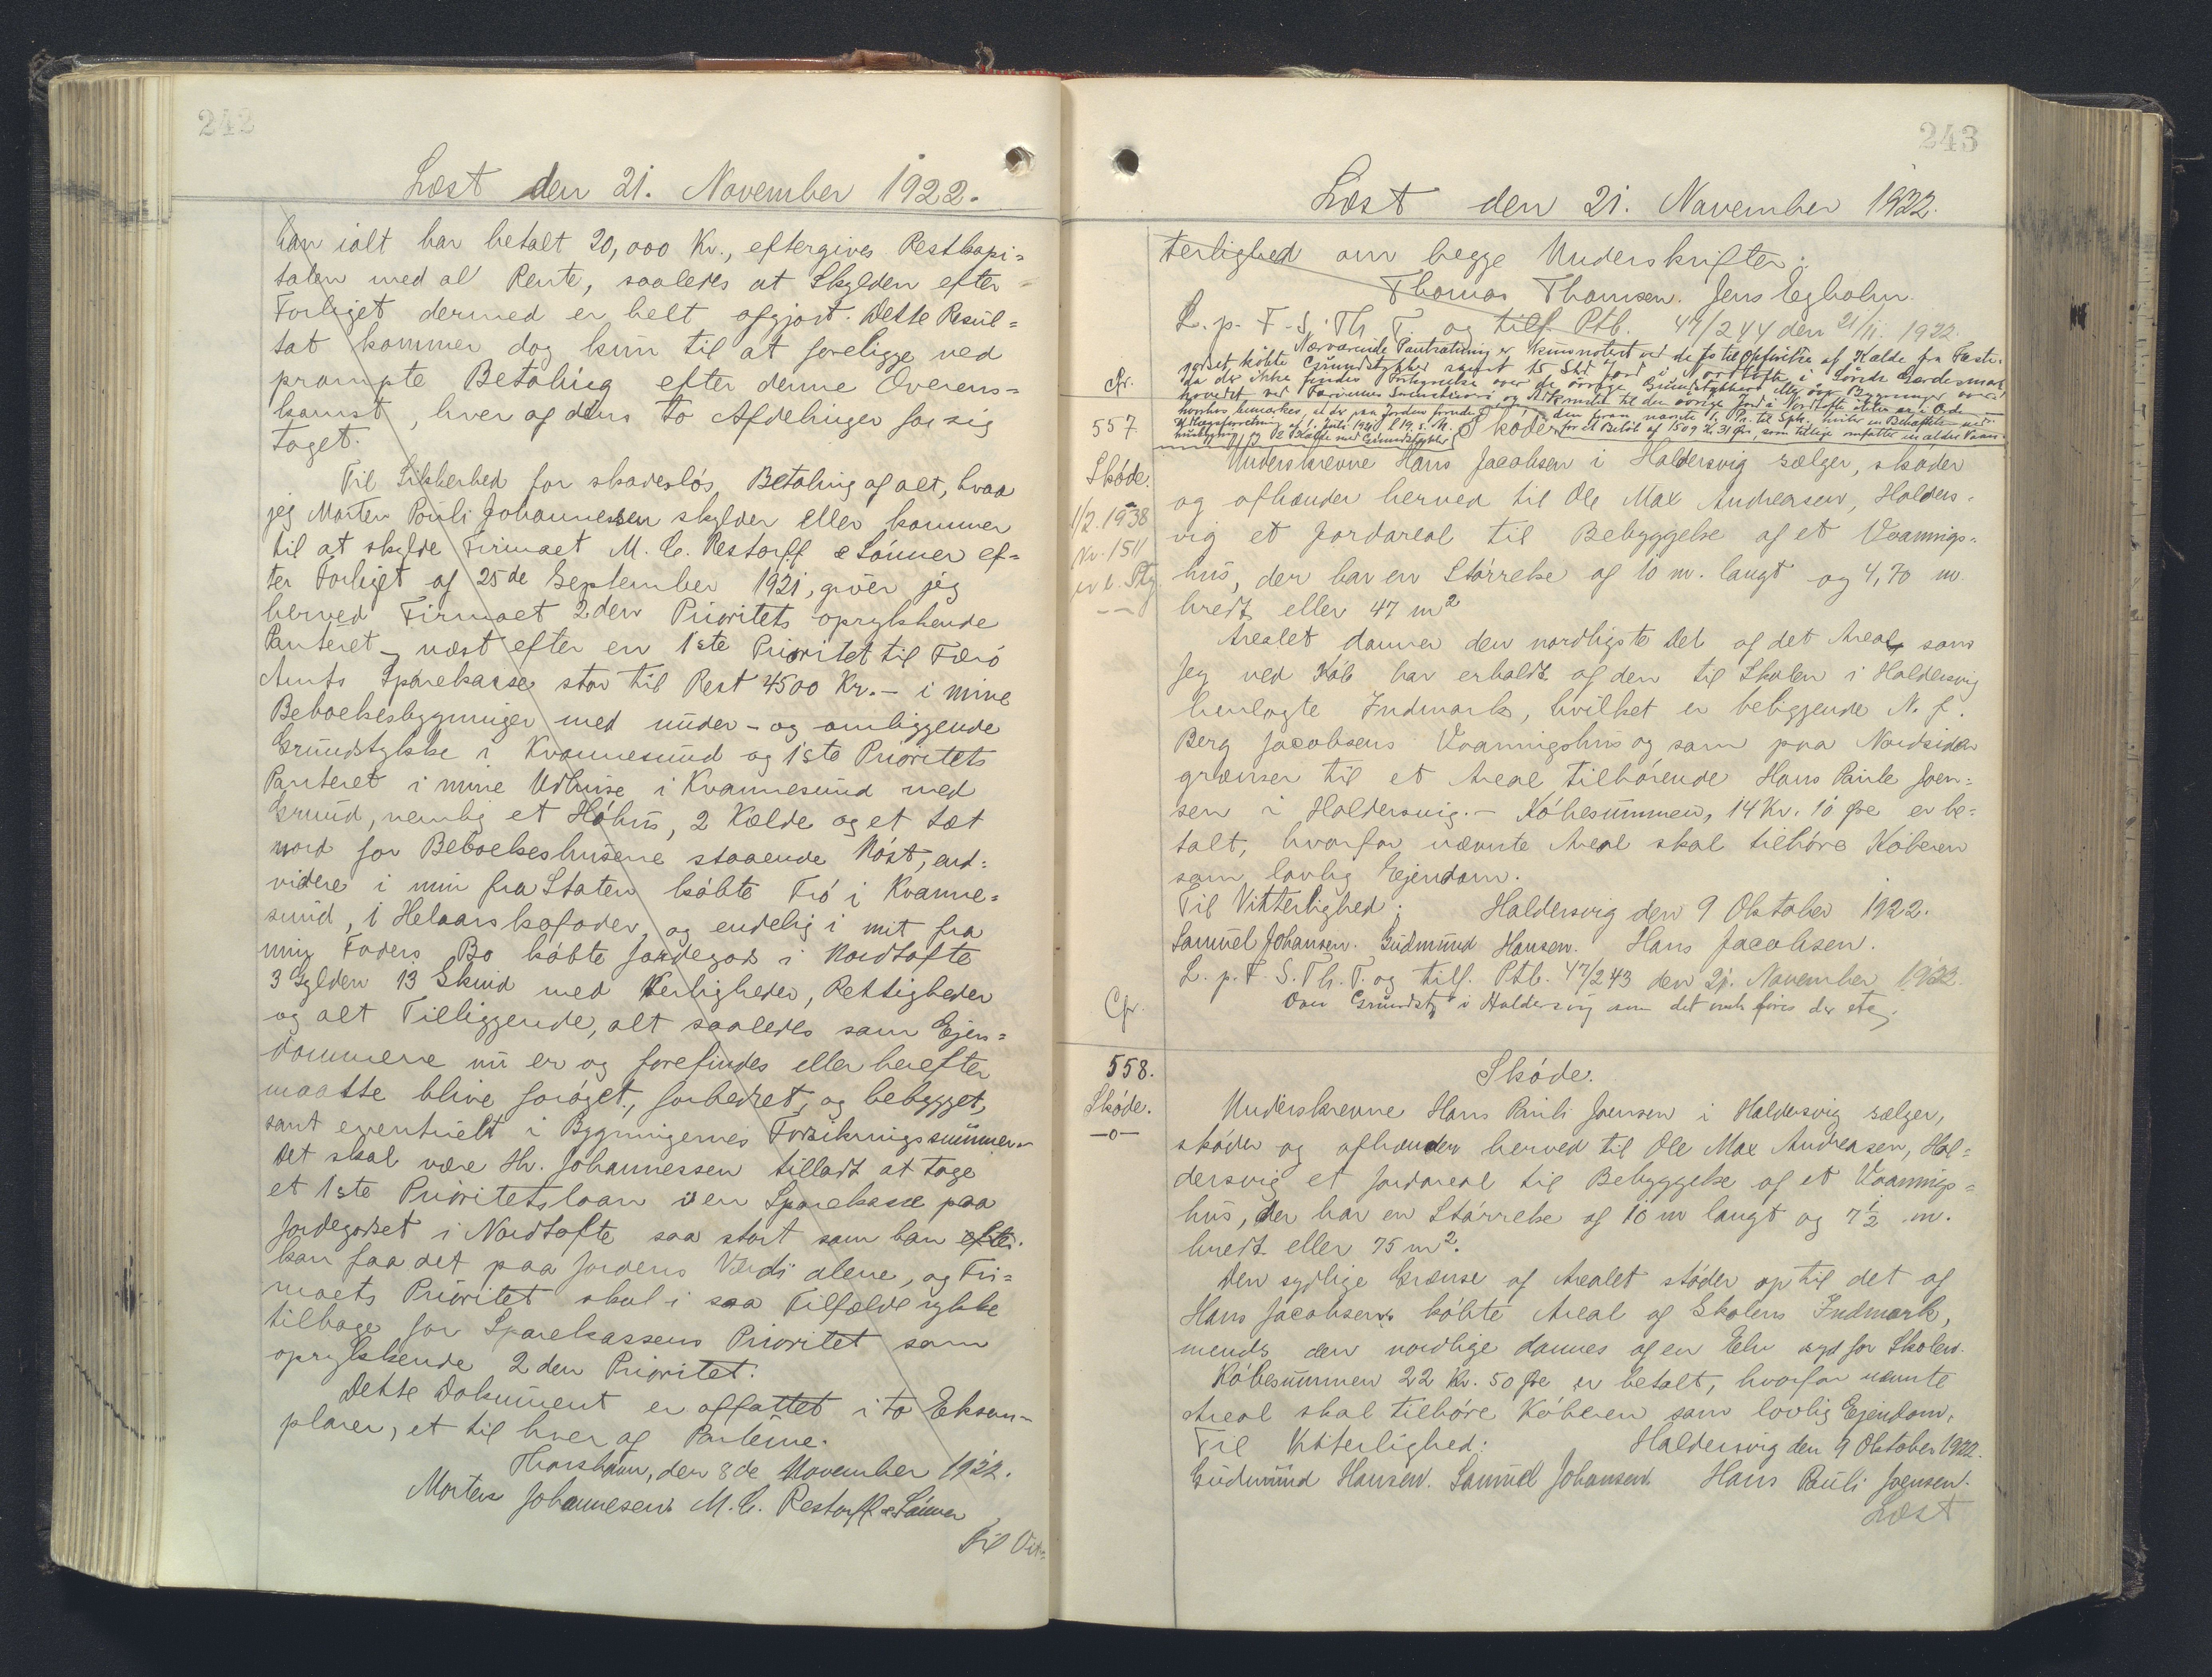 242
Læst den 21. November 1922.
han ialt har betalt 20,000 Kr., eftergives Restkapi=
talen med al Rente, saaledes at Skylden efter
Forliget dermed er helt afgjort. Dette Resul=
tat kommer dog kun til at foreligge ved
prompte Betaling efter denne Overens=
komst, hver af dens to Afdelinger for sig
taget.
Til Sikkerhed for skadeslös Betaling af alt, hvad
jeg Morten Pouli Johannessen skylder eller kommer
til at skylde Firmaet M. C. Restorff & Sönner ef=
ter Forliget af 25de September 1921, giver jeg
herved Firmaet 2den Prioritets oprykkende
Panteret – næst efter en 1ste Prioritet til Færö
Amts Sparekasse stor til Rest 4500 Kr. – i mine
Beboelsesbygninger med under- og omliggende
Grundstykke i Kvannesund og 1ste Prioritets
Panteret i mine Udhuse i Kvannesund med
Grund, nemlig et Höhus, 2 Kælde og et tæt
nord for Beboelseshusene staaende Nöst, end=
videre i min fra Staten købte Trö i Kvanne=
sund, 1 Helaars kofoder, og endelig i mit fra
min Faders Bo købte Jordegods i Nordtofte
3 Gylden 13 Skind med Herligheder, Rettigheder
og alt Tilliggende, alt saaledes som Ejen=
dommene nu er og forefindes eller herefter
maatte blive forøget, forbedret, og bebygget,
samt eventuelt i Bygningernes Forsikringssummer.
Det skal være Hr. Johannessen tilladt at tage
et 1ste Prioritetslaan i en Sparekasse paa
Jordegodset i Nordtofte saa stort som han efter
kan faa det paa Jordens Værdi alene, og Fir=
maets Prioritet skal i saa Tilfælde rykke
tilbage for Sparekassens Prioritet som
oprykkende 2den Prioritet.
Dette Dokument er affattet i to Eksem=
plarer, et til hver af Parterne.
Thorshavn, den 8de November 1922.
Morten Johannesen. M. C. Restorff & Sönner
Til Vit=
243
Læst den 21. November 1922.
terlighed om begge Underskrifter:
Thomas Thomsen. Jens Egholm.
L. p. F. S. Th. T. og tilf. Ptb. 47/244 den 21/11. 1922.
Cfr.
557
Skøde
Skøde.
Underskrevne Hans Jacobsen i Haldersvig sælger, skøder
og afhænder herved til Ole Max Andreasen, Halders=
1/2. 1938
vig et Jordareal til Bebyggelse af et Vaanings=
Kr. 1511
hus, der har en Størrelse af 10 m. langt og 4,70 m.
bredt eller 47 m²
Arealet danner den nordligste Del af det Areal, som
jeg ved Køb har erholdt af den til Skolen i Haldersvig
henlagte Indmark, hvilket er beliggende N. f.
Berg Jacobsens Vaaningshus og som paa Nordsiden
grænser til et Areal tilhörende Hans Paule Joen=
sen i Haldersvig. – Købesummen, 14 Kr. 10 Øre er be=
talt, hvorfor nævnte Areal skal tilhøre Køberen
som lovlig Ejendom.
Til Vitterlighed: Haldersvig den 9 Oktober 1922.
Samuel Johansen. Gudmund Hansen. Hans Jacobsen.
L. p. F. S. Th. T. og tilf. Ptb. 47/243 den 21. November 1922.
Cfr.
558.
Skøde.
Skøde.
—o—
Underskrevne Hans Pauli Joensen i Haldersvig sælger,
skøder og afhænder herved til Ole Max Andreasen, Hal=
dersvig et Jordareal til Bebyggelse af et Vaanings=
hus, der har en Størrelse af 10 m langt og 7½ m.
bredt eller 75 m².
Den sydlige Grænse af Arealet støder op til det af
Hans Jacobsens købte Areal af Skolens Indmark,
mends den nordlige dannes af en Elv syd for Skolen.
Købesummen 22 Kr. 50 Øre er betalt, hvorfor nævnte
Areal skal tilhøre Køberen som lovlig Ejendom.
Til Vitterlighed: Haldersvig den 9 Oktober 1922.
Gudmund Hansen. Samuel Johansen. Hans Pauli Joensen.
Læst